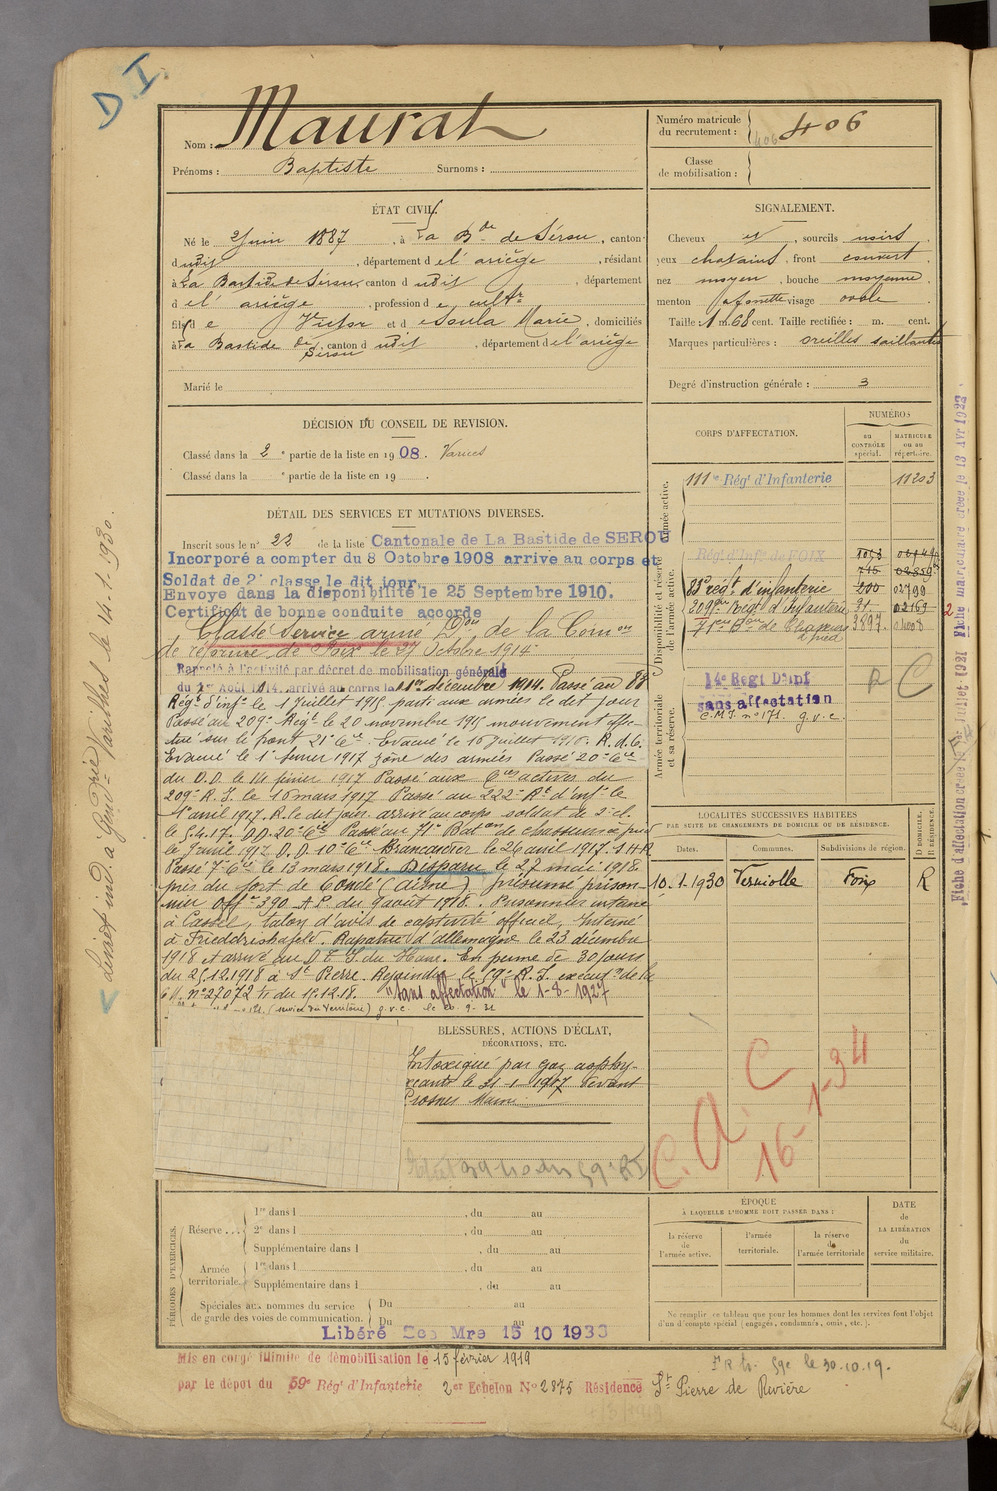 D I
Nom : Maurat
Prénoms : Baptiste Surnoms :
Numéro matricule du recrutement : 406 406
Classe de mobilisation :
ÉTAT CIVIL.
Né le 2 Juin 1887, à La Bde de Sérou, canton
dudit, département de l'ariège, résidant
à La Bastide de Sérou, canton dudit, département
de l'ariège, profession de cultr
fils de Victor et de Soula Marie, domiciliés
à La Bastide de Sérou, canton dudit, département de l'ariège
Marié le
SIGNALEMENT.
Cheveux et, sourcils noirs,
yeux chatains, front couvert,
nez moyen, bouche moyenne
menton à fossette visage ovale.
Taille : 1 m. 68 cent. Taille rectifiée : m. cent.
Marques particulières : oreilles saillantes
Degré d'instruction générale : 3
DÉCISION DU CONSEIL DE REVISION.
Classé dans la 2e partie de la liste en 1908. Varices
Classé dans la e partie de la liste en 19 .
CORPS D'AFFECTATION.
NUMÉROS
au contrôle spécial.
matricule ou au répertoire.
Armée active.
111e Régt d'Infanterie 11203
Disponibilité et réserve de l'armée active.
Régt d'Infie de FOIX 1053
715 02859
83e régt d'infanterie 200 02799
209e Régt d'Infanterie 31 02169
71e Bon de Chasseurs à pied 3897
Armée territoriale et sa réserve.
14e Régt D'Inf R C
sans affectation
C.M.I. no 171. g.v.c.
DÉTAIL DES SERVICES ET MUTATIONS DIVERSES.
Inscrit sous le no 22 de la liste Cantonale de La Bastide de SEROU
Incorporé a compter du 8 Octobre 1908 arrive au corps et
Soldat de 2e classe le dit jour.
Envoye dans la disponibilité le 25 Septembre 1910.
Certificat de bonne conduite accorde
Classé Service armé Don de la Comon
de réforme de Foix le 27 Octobre 1914
Rappelé à l'activité par décret de mobilisation générale
du 1er Août 1914. arrivé au corps le 11 décembre 1914. Passé au 88
Régt d'infie le 1 juillet 1915 parti aux armées le dit jour
Passé au 209e Régt le 20 novembre 1915 mouvement effec-
tué sur le front 21e Cie. Evacué le 16 juillet 1916. R.d.C.
Evacué le 1er fevrier 1917 zone des armées Passé 20e Cie
du D.D. le 14 février 1917 Passé aux Cies actives du
209e R.I. le 16 mars 1917 Passé au 222e Rt d'infie le
1er avril 1917. R. le dit jour. arrivé au corps soldat de 2e cl.
le 5.4.17. D.D. 20e Cie Passé au 71e Baton de chasseurs à pied
le 9 avril 1917 D.D. 10e Cie Brancardier le 26 avril 1917. S.H.R.
Passé 7e Cie le 13 mars 1918. Disparu le 27 mai 1918.
près du fort de Condé (Aisne) présumé prison-
nier Offel 390 A.P. du 9 aout 1918. Prisonnier interné
à Cassel, talon d'avis de captivité officiel, Interné
à Frieddrichsfeld. Rapatrié d'allemagne le 23 décembre
1918 et arrivé au D.T.I. du Havre. En perme de 30 jours
du 25.12.1918 à St Pierre. Rejoindra le 59e R.I. exécutn de la
no 27072 1/11 du 15.12.18. "sans affectation" le 1-8-1927
(service du Territoire) g.v.c.
LOCALITÉS SUCCESSIVES HABITÉES
PAR SUITE DE CHANGEMENTS DE DOMICILE OU DE RÉSIDENCE.
Dates. Communes. Subdivisions de région. D DOMICILE. R RÉSIDENCE.
10.1.1930 Verniolle Foix R
C
C.A. 16-1-34
BLESSURES, ACTIONS D'ÉCLAT,
DÉCORATIONS, ETC.
Intoxiqué par gaz asphy-
xiants le 31-1-1917 devant
Prosnes Marne
PÉRIODES D'EXERCICES.
Réserve ... 1re dans l , du au
2e dans l , du au
Supplémentaire dans l , du au
Armée territoriale. 1re dans l , du au
Supplémentaire dans l , du au
Spéciales aux hommes du service de garde des voies de communication. Du au
Du au
Libéré Sce Mre 15 10 1933
ÉPOQUE
À LAQUELLE L'HOMME DOIT PASSER DANS :
la réserve de l'armée active.
l'armée territoriale.
la réserve de l'armée territoriale
DATE de LA LIBÉRATION du service militaire.
Ne remplir ce tableau que pour les hommes dont les services font l'objet
d'un décompte spécial (engagés, condamnés, omis, etc.).
Mis en congé illimité de démobilisation le 15 février 1919
par le dépôt du 59e Régt d'Infanterie 2er Echelon No 2875 Résidence St Pierre de Rivière
59e le 30.10.19.
Fiche matriculaire créée le 13 AVR 1922.
Fiche d'affectation créée le Juillet 1921
2